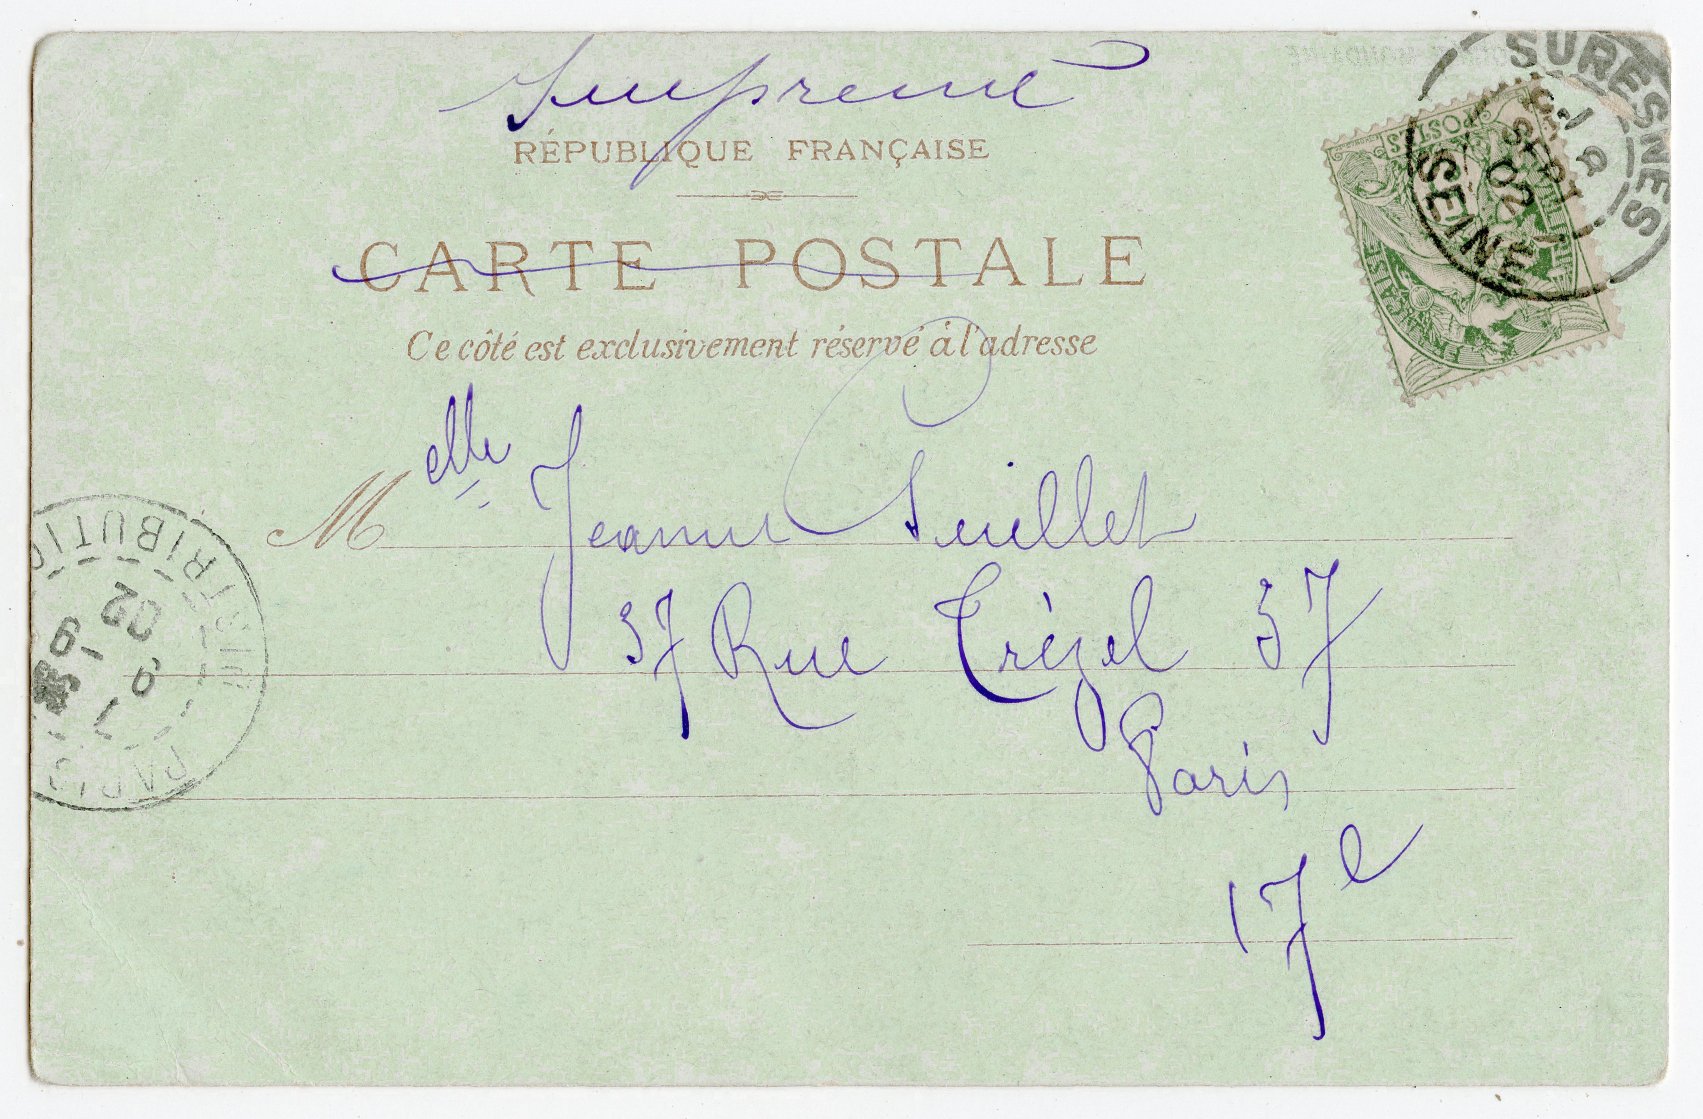 Imprimé
RÉPUBLIQUE FRANÇAISE
CARTE POSTALE
Ce côté est exclusivement réservé à l'adresse
SURESNES
SEPT
02
SEINE
POSTES
FRANÇAISE
Melle Jeanne
37 Rue Trézel 37
Paris
17e
DISTRIBUTIO
02
PARIS